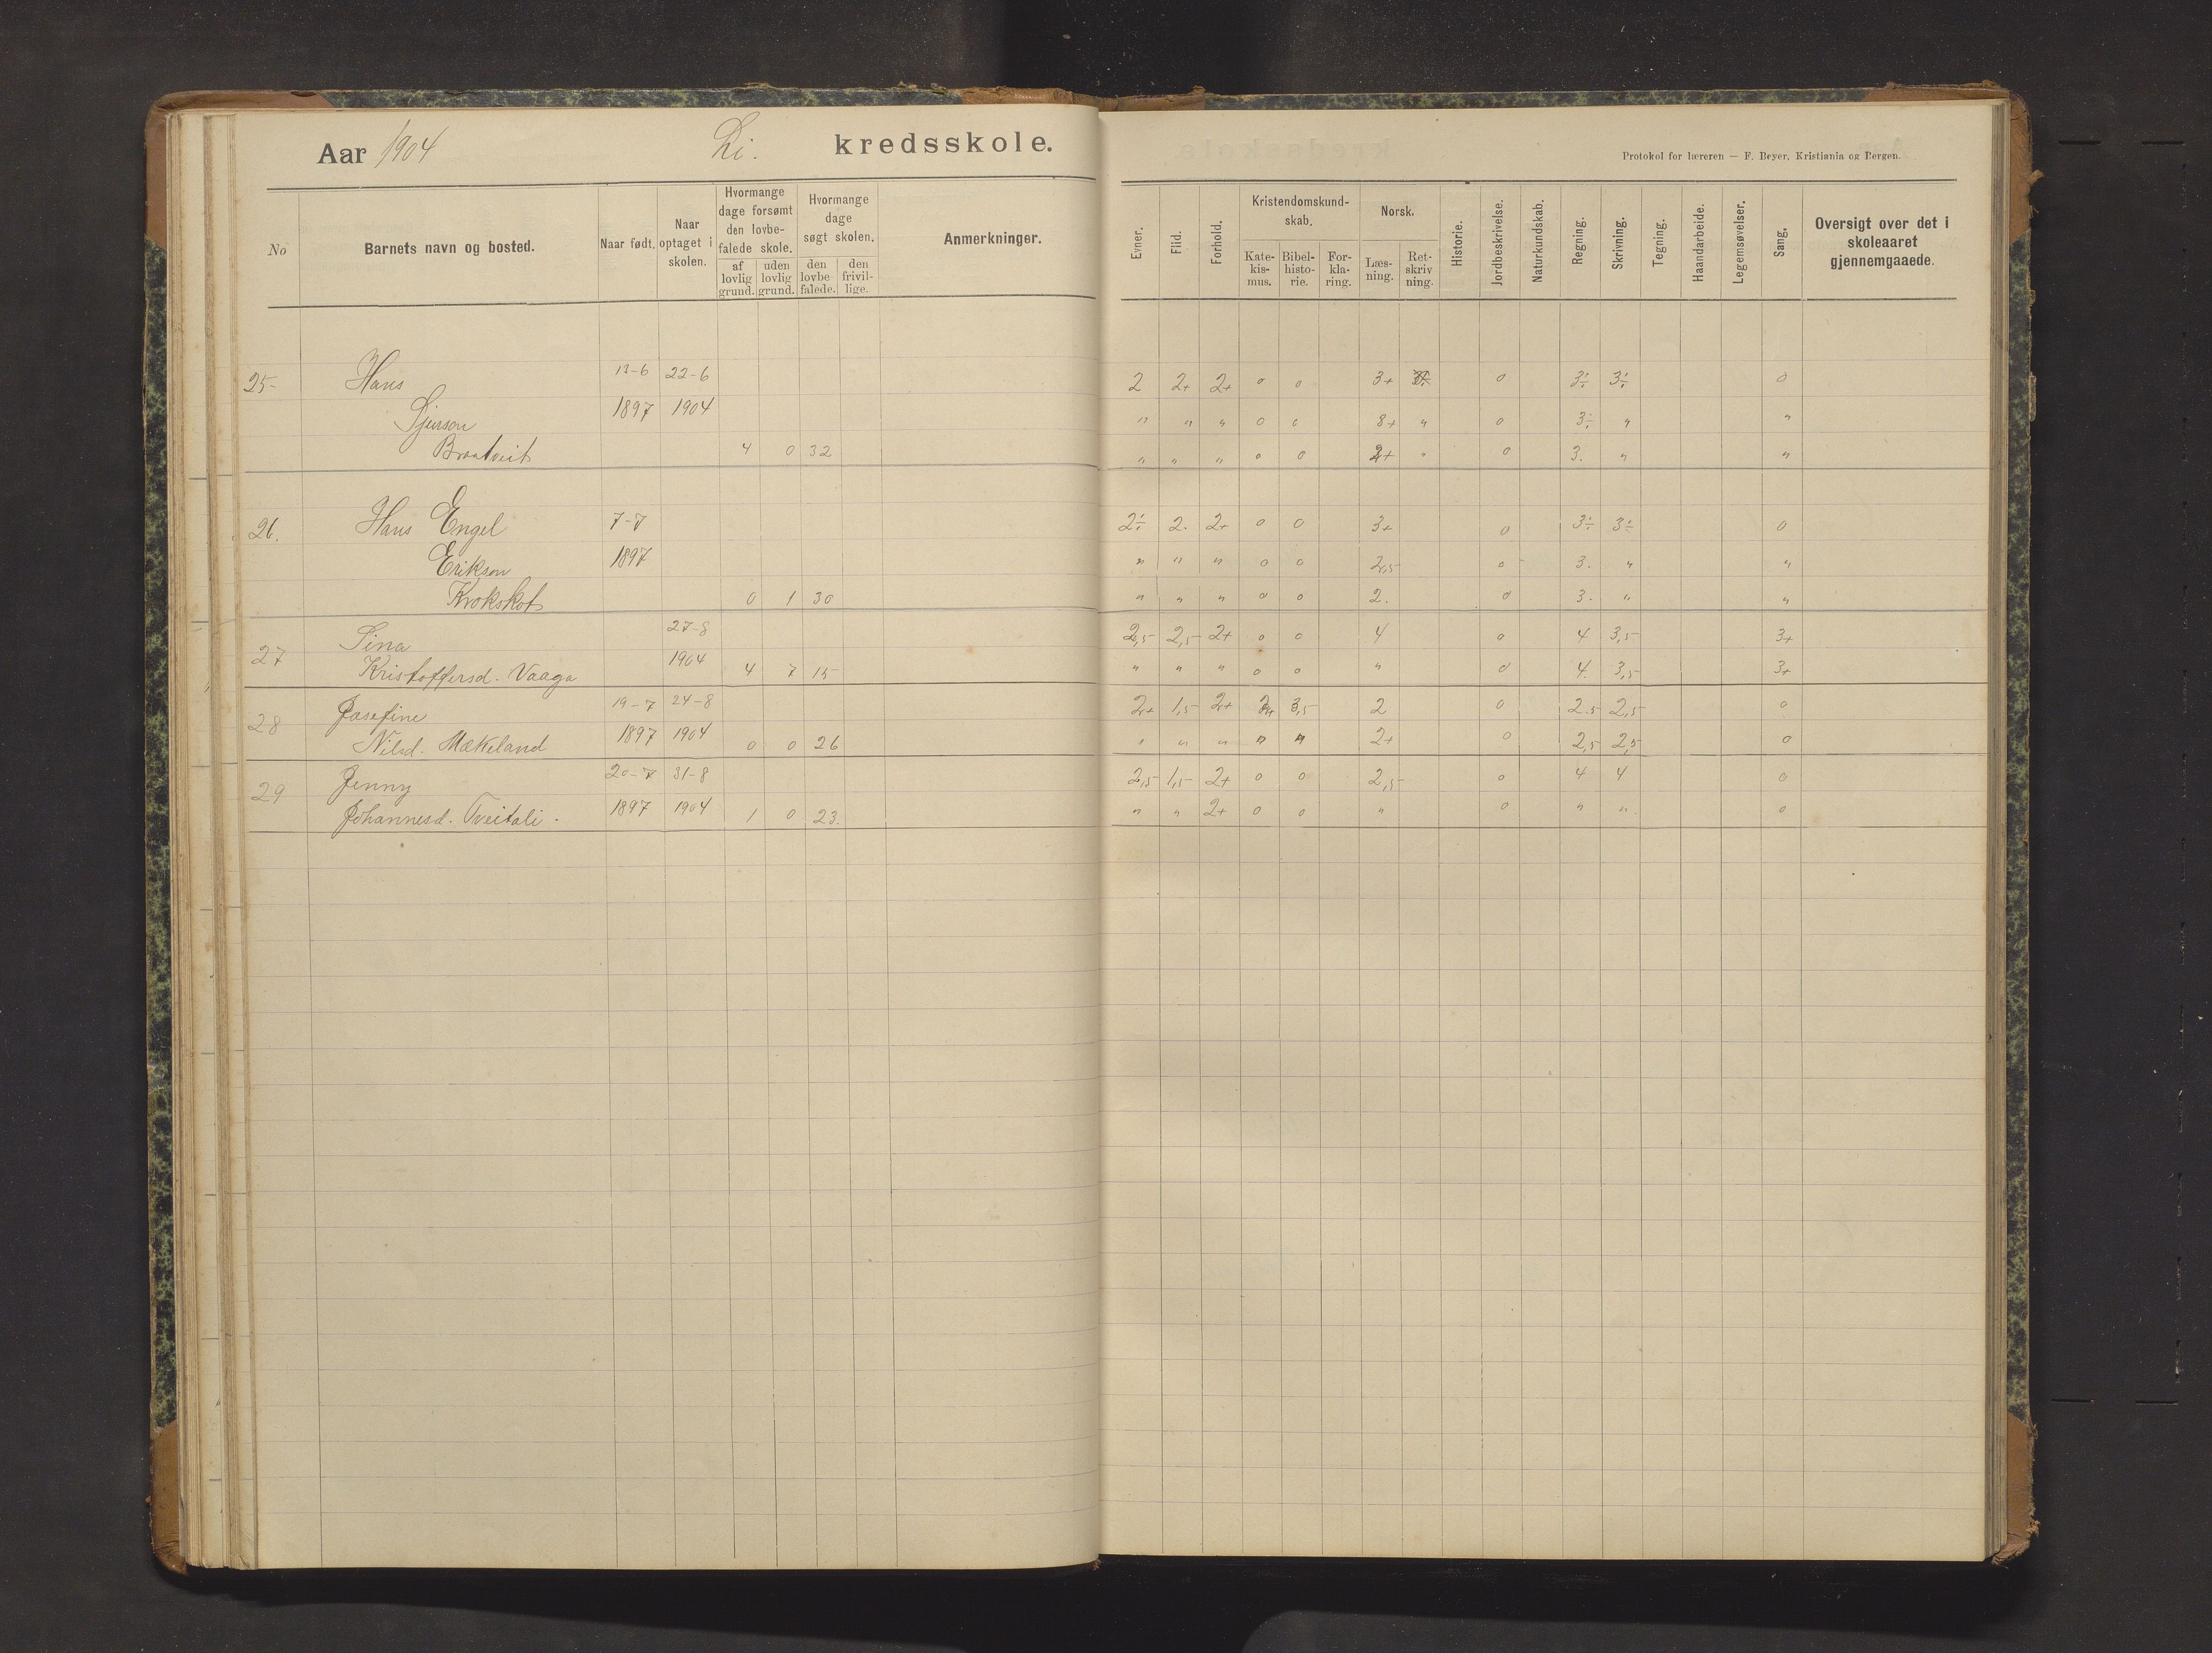 Aar 1904 Li. kredsskole.
Protokol for læreren — F. Beyer, Kristiania og Bergen.
No Barnets navn og bosted. Naar født. Naar optaget i skolen. Hvormange dage forsømt den lovbe- falede skole. af lovlig grund. uden lovlig grund. Hvormange dage søgt skolen. den lovbe falede. den frivil- lige. Anmerkninger.
Evner. Flid. Forhold. Kristendomskund- skab. Kate- kis- mus. Bibel- histo- rie. For- kla- ring. Norsk. Læs- ning. Ret- skriv ning. Historie. Jordbeskrivelse. Naturkundskab. Regning. Skrivning. Tegning. Haandarbeide. Legemsøvelser. Sang. Oversigt over det i skoleaaret gjennemgaaede.
25- Hans 13-6 22-6 2 2+ 2+ 0 0 3+ 0 3÷ 3÷ 0
Sjurson 1897 1904 " " " 0 0 3+ " 0 3÷ " "
Braatveit 4 0 32 " " " 0 0 2+ " 0 3. " "
26. Hans Engel 7-7 2÷ 2. 2+ 0 0 3+ 0 3÷ 3÷ 0
Erikson 1897 " " " 0 0 2,5 0 3. " "
Krokskot 0 1 30 " " " 0 0 2. 0 3. " "
27 Sina 27-8 2,5 2,5 2+ 0 0 4 0 4 3,5 3+
Kristoffersd. Vaaga 1904 4 7 15 " " " 0 0 " 0 4. 3,5 3+
28 Josefine 19-7 24-8 2+ 1,5 2+ 3,5 2 0 2.5 2,5 0
Nilsd. Mækeland 1897 1904 0 0 26 " " " " " 2+ 0 2,5 2,5 0
29 Jenny 20-7 31-8 2,5 1,5 2+ 0 0 2,5 0 4 4 0
Johannesd. Tveitali. 1897 1904 1 0 23. " " 2+ 0 0 " 0 " " 0